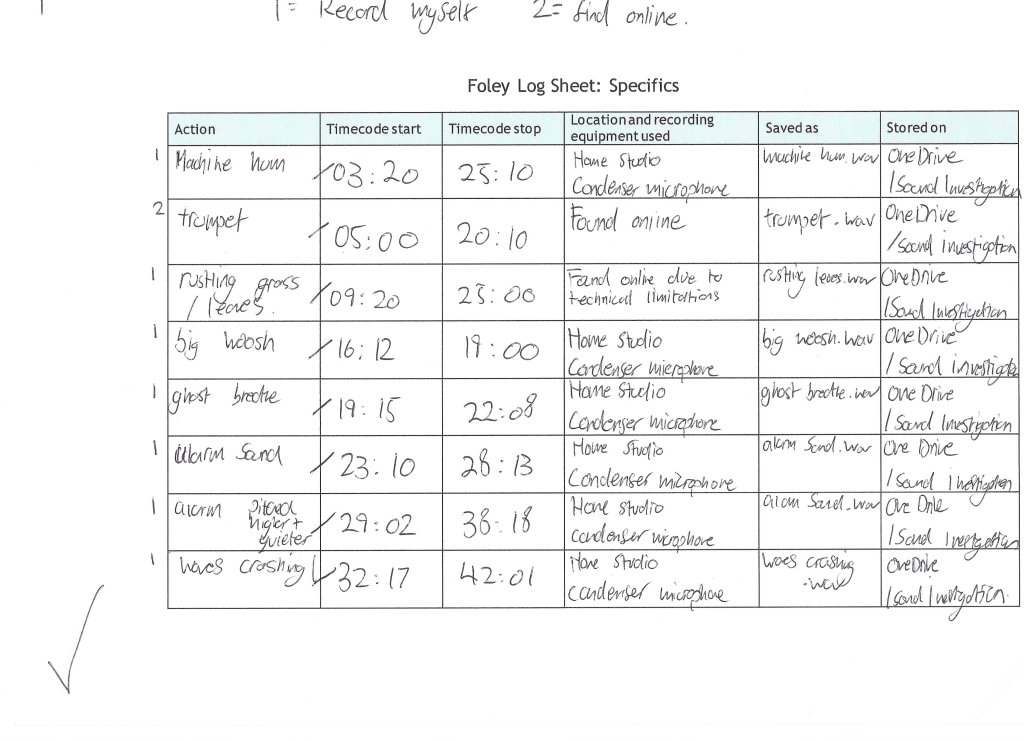 1 = Record myself 2 = find online.
Foley Log Sheet: Specifics
Action Timecode start Timecode stop Location and recording equipment used Saved as Stored on
1 Machine hum 03:20 25:10 Home Studio Condenser microphone machine hum.wav OneDrive /Sound Investigation
2 trumpet 05:00 20:10 Found online trumpet.wav OneDrive /Sound investigation
1 rustling grass / leaves. 09:20 25:00 Found online due to technical limitations rustling leaves.wav OneDrive /Sound Investigation
1 big woosh 16:12 19:00 Home Studio Condenser microphone big woosh.wav OneDrive / Sound investigatio
1 ghost breathe 19:15 22:08 Home Studio Condenser microphone ghost breathe.wav One Drive / Sound Investigation
1 alarm Sound 23:10 28:13 Home Studio Condenser microphone alarm Sound.wav One Drive / Sound investigation
1 alarm pitched higher + quieter 29:02 38:18 Home studio condenser microphone alarm Sound.wav One Drive / Sound Investigation
1 waves crashing 32:17 42:01 Home Studio condenser microphone waves crashing .wav OneDrive / Sound Investigation.